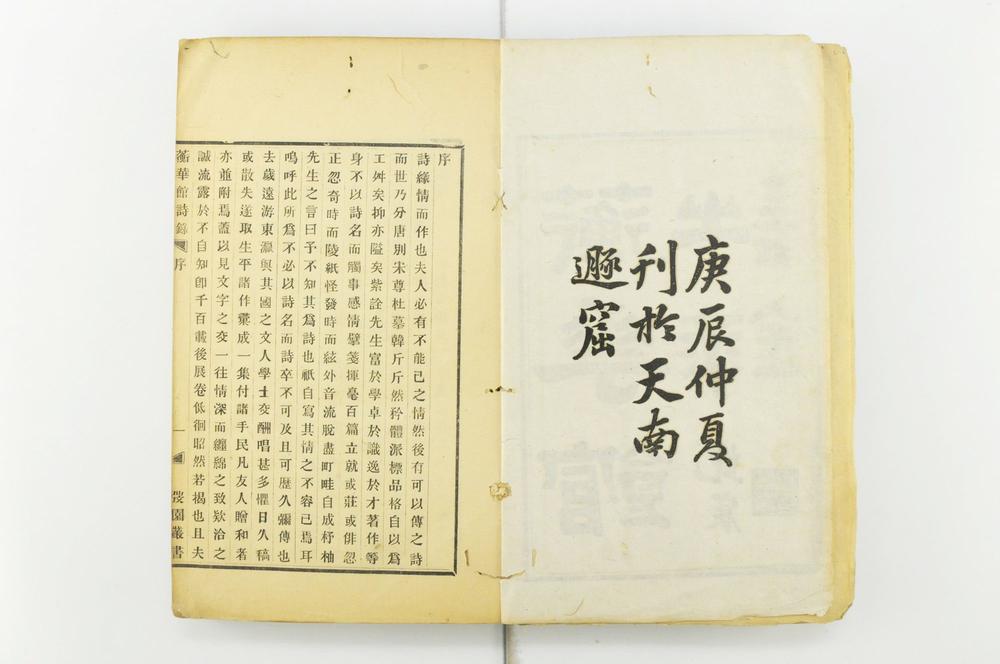 庚辰仲夏
刊於天南
遯窟
序
詩緣情而作也夫人必有不能已之情然後有可以傳之詩
而世乃分唐別宋尊杜墓韓斤斤然矜體派標品格自以為
工舛矣抑亦隘矣紫詮先生富於學卓於識逸於才著作等
身不以詩名而觸事感情擘箋揮毫百篇立就或莊或俳忽
正忽奇時而陵紙怪發時而絃外音流脫盡町畦自成杼柚
先生之言曰予不知其為詩也祇自寫其情之不容已焉耳
嗚呼此所為不必以詩名而詩卒不可及且可歷久彌傳也
去歲遠游東瀛與其國之文人學士交酬唱甚多懼日久稿
或散失遂取生平諸作彙成一集付諸手民凡友人贈和者
亦並附焉蓋以見文字之交一往情深而纏綿之致欵洽之
誠流露於不自知卽千百載後展卷低徊昭然若揭也且夫
蘅華館詩錄 序 一 弢園叢書